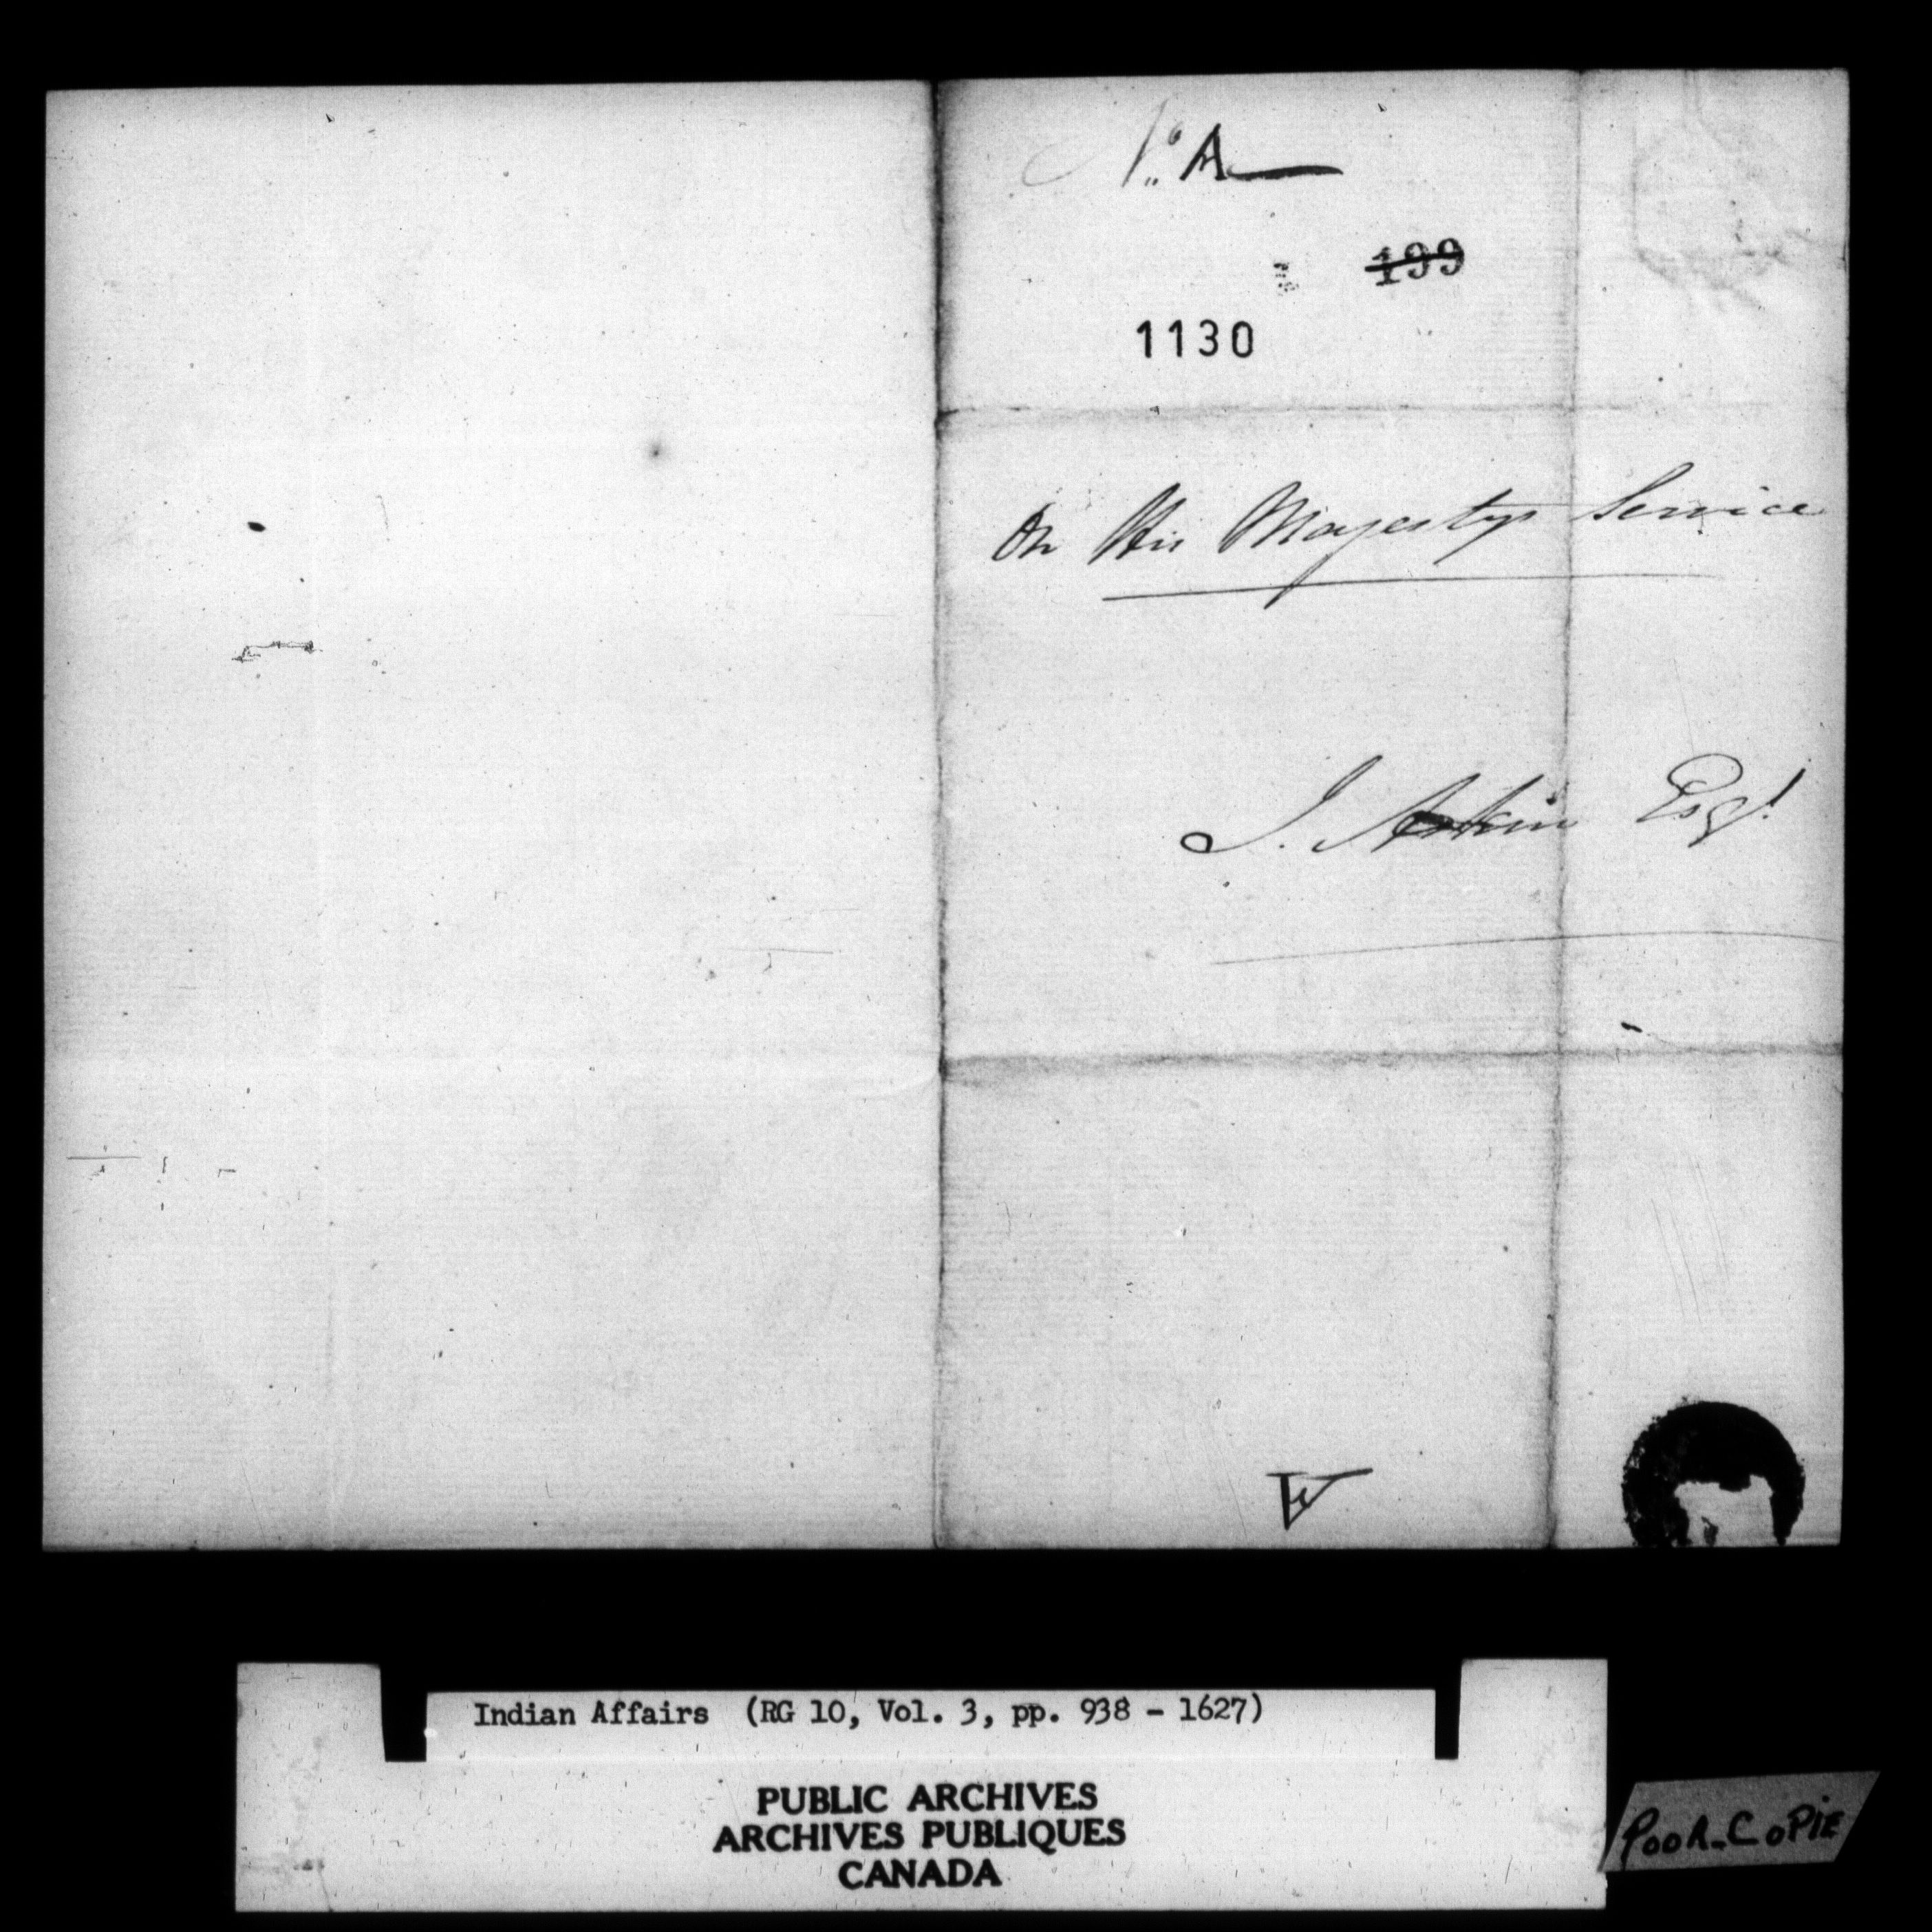 No. A
199
1130
On His Majestys Service
J. Askin Esqr.
Indian Affairs (RG 10, Vol. 3, pp. 938 - 1627)
PUBLIC ARCHIVES
ARCHIVES PUBLIQUES
CANADA
POOR_COPIE